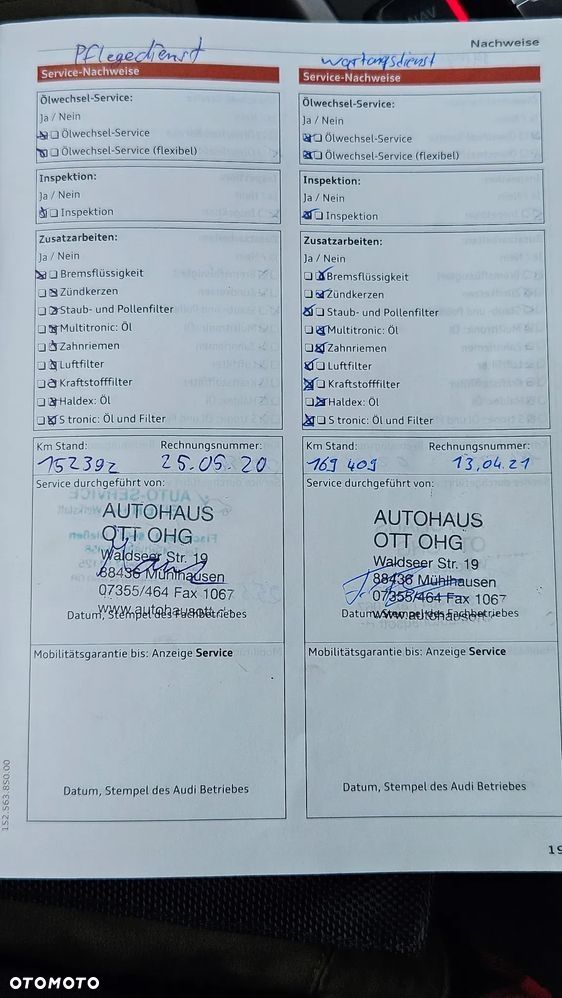 Nachweise
Pflegedienst
Service-Nachweise
Ölwechsel-Service:
Ja / Nein
Ölwechsel-Service
Ölwechsel-Service (flexibel)
Inspektion:
Ja / Nein
Inspektion
Zusatzarbeiten:
Ja / Nein
Bremsflüssigkeit
Zündkerzen
Staub- und Pollenfilter
Multitronic: Öl
Zahnriemen
Luftfilter
Kraftstofffilter
Haldex: Öl
S tronic: Öl und Filter
Km Stand: Rechnungsnummer:
152392 25.05.20
Service durchgeführt von:
AUTOHAUS
OTT OHG
Waldseer Str. 19
88436 Mühlhausen
07355/464 Fax 1067
www.autohausott.
Datum, Stempel des Fachbetriebes
Mobilitätsgarantie bis: Anzeige Service
Datum, Stempel des Audi Betriebes
Wartungsdienst
Service-Nachweise
Ölwechsel-Service:
Ja / Nein
Ölwechsel-Service
Ölwechsel-Service (flexibel)
Inspektion:
Ja / Nein
Inspektion
Zusatzarbeiten:
Ja / Nein
Bremsflüssigkeit
Zündkerzen
Staub- und Pollenfilter
Multitronic: Öl
Zahnriemen
Luftfilter
Kraftstofffilter
Haldex: Öl
S tronic: Öl und Filter
Km Stand: Rechnungsnummer:
169 409 13.04.21
Service durchgeführt von:
AUTOHAUS
OTT OHG
Waldseer Str. 19
88436 Mühlhausen
07355/464 Fax 1067
www.autohausott.
Datum, Stempel des Fachbetriebes
Mobilitätsgarantie bis: Anzeige Service
Datum, Stempel des Audi Betriebes
152.563.850.00
19
OTOMOTO